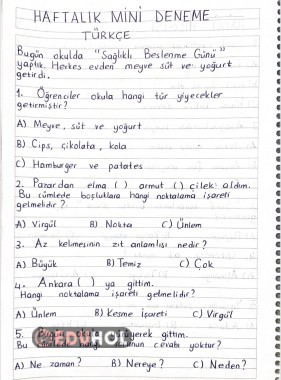 HAFTALIK MİNİ DENEME
TÜRKÇE
Bugün okulda "Sağlıklı Beslenme Günü"
yaptık. Herkes evden meyve süt ve yoğurt
getirdi.
1. Öğrenciler okula hangi tür yiyecekler
getirmiştir?
A) Meyve, süt ve yoğurt
B) Cips, çikolata, kola
C) Hamburger ve patates
2. Pazardan elma ( ) armut ( ) çilek aldım.
Bu cümlede boşluklara hangi noktalama işareti
gelmelidir?
A) Virgül B) Nokta C) Ünlem
3. Az kelimesinin zıt anlamlısı nedir?
A) Büyük B) Temiz C) Çok
4. Ankara ( ) ya gittim.
Hangi noktalama işareti gelmelidir?
A) Ünlem B) Kesme İşareti C) Virgül
5. gittim.
EDUHOL
Bu cevabı yoktur?
A) Ne zaman? B) Nereye? C) Neden?